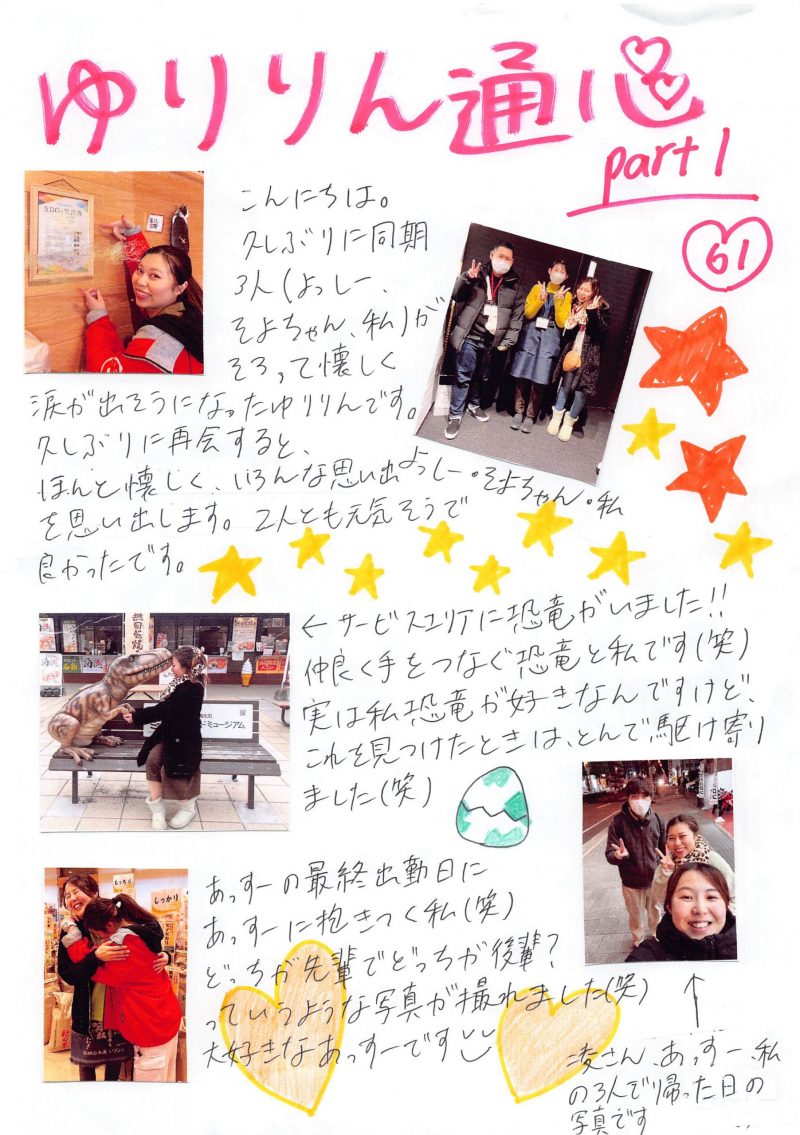 ゆりりん通心
part 1
61
こんにちは。
久しぶりに同期
3人(よっしー、
そよちゃん、私)が
そろって懐しく
涙が出そうになったゆりりんです。
久しぶりに再会すると、
ほんと懐しく、いろんな思い出
を思い出します。2人とも元気そうで
良かったです。
よっしー・そよちゃん・私
←サービスエリアに恐竜がいました!!
仲良く手をつなぐ恐竜と私です(笑)
実は私恐竜が好きなんですけど、
これを見つけたときは、とんで駆け寄り
ました(笑)
ミュージアム
あっすーの最終出勤日に
あっすーに抱きつく私(笑)
どっちが先輩でどっちが後輩?
っていうような写真が撮れました(笑)
大好きなあっすーです
もっちり
しっかり
↑
凌さん、あっすー、私
の3人で帰った日の
写真です